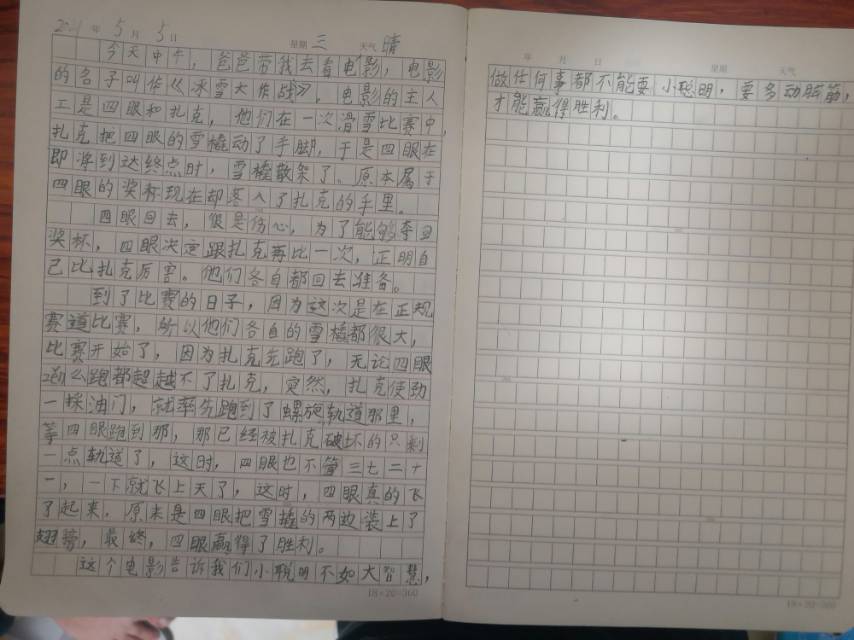 2021 年 5 月 5 日 星期 三 天气 晴
今天中午，爸爸带我去看电影，电影
的名子叫作《冰雪大作战》，电影的主人
工是四眼和扎克，他们在一次滑雪比赛中，
扎克把四眼的雪橇动了手脚，于是四眼在
即将到达终点时，雪橇散架了。原本属于
四眼的奖杯现在却落入了扎克的手里。
四眼回去，很是伤心，为了能够夺回
奖杯，四眼决定跟扎克再比一次，正明自
己比扎克厉害。他们各自都回去准备。
到了比赛的日子，因为这次是在正规
赛道比赛，所以他们各自的雪橇都很大，
比赛开始了，因为扎克先跑了，无论四眼
怎么跑都超越不了扎克，突然，扎克使劲
一踩油门，就率先跑到了螺旋轨道那里，
等四眼跑到那，那已经被扎克破坏的只剩
一点轨道了，这时，四眼也不管三七二十
一，一下就飞上天了，这时，四眼真的飞
了起来，原来是四眼把雪橇的两边装上了
翅膀，最终，四眼赢得了胜利。
这个电影告诉我们小聪明不如大智慧，
18×20=360
年 月 日 星期 天气
做任何事都不能耍小聪明，要多动脑筋，
才能赢得胜利。
18×20=360